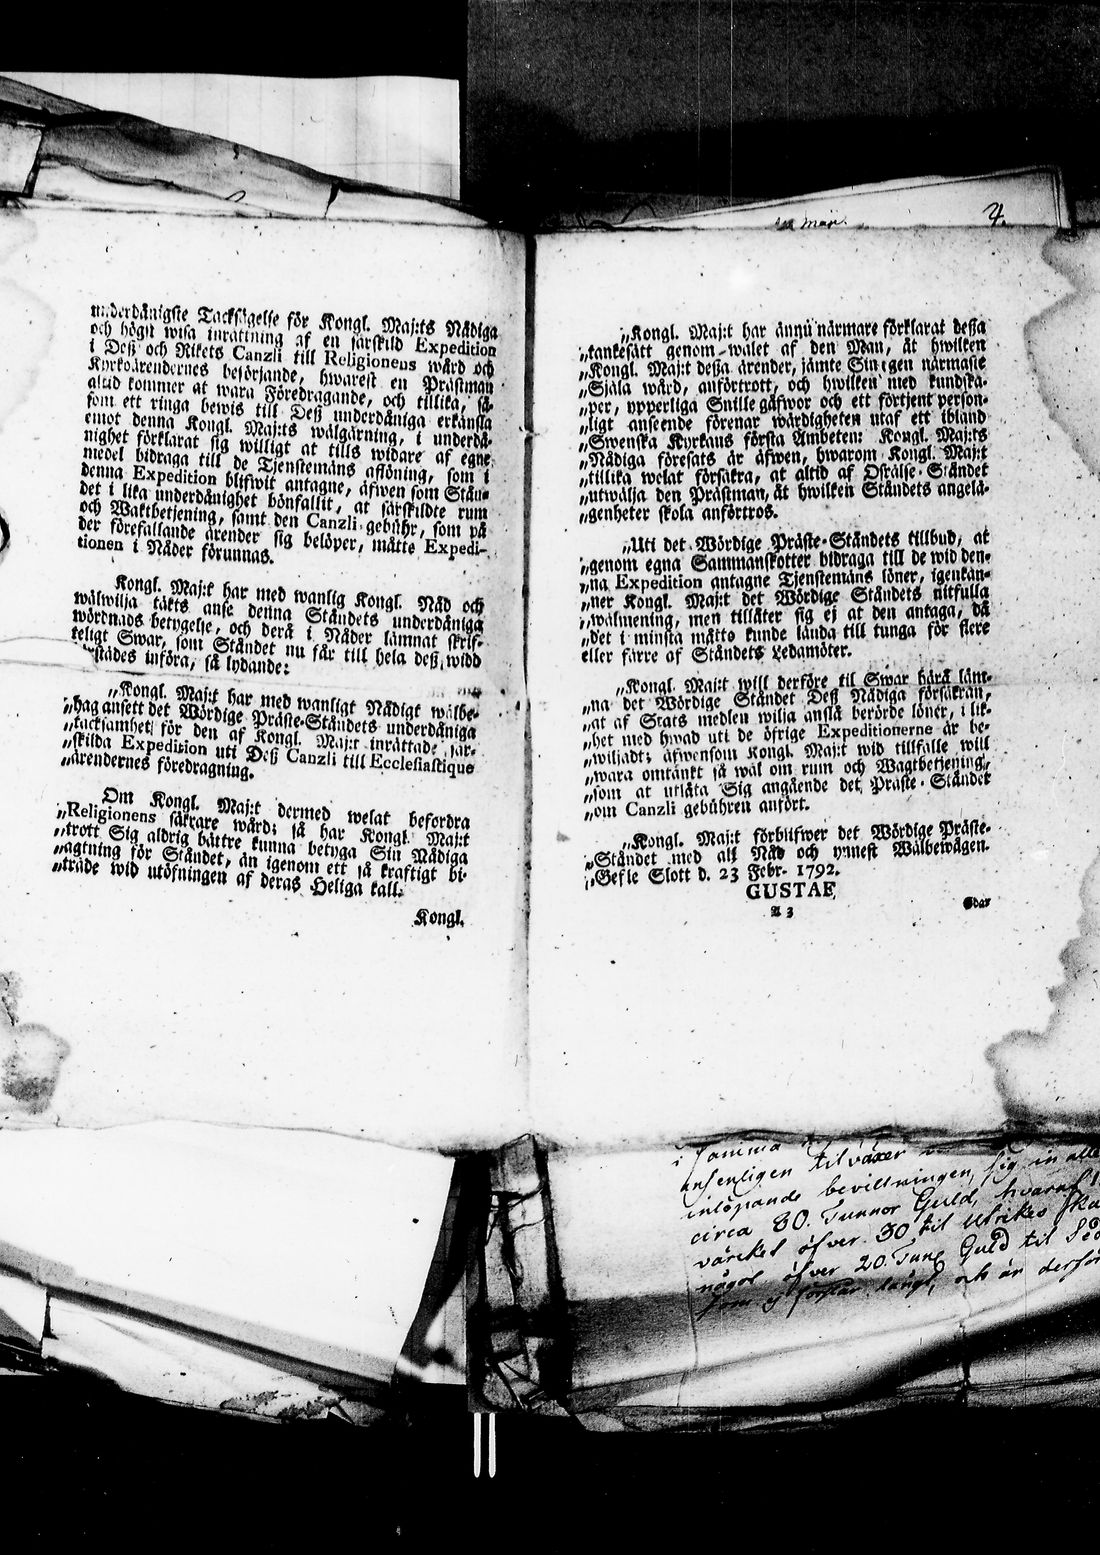 underdånigste Tacksägelse för Kongl. Maj:ts Nådiga
och högst wisa inrättning af en särskild Expedition
i Deß och Rikets Canzli till Religionens wård och
Kyrkoärendernes besörjande, hwarest en Prästman
altid kommer at wara Föredragande, och tillika, så-
som ett ringa bewis till Deß underdåniga erkänsla
emot denna Kongl. Maj:ts wälgärning, i underdå-
nighet förklarat sig willigt at tills widare af egne
medel bidraga till de Tjenstemäns aflöning, som i
denna Expedition blifwit antagne, äfwen som Stån-
det i lika underdånighet bönfallit, at särskildte rum
och Waktbetjening, samt den Canzli gebühr, som på
der förefallande ärender sig belöper, måtte Expedi-
tionen i Nåder förunnas.
Kongl. Maj:t har med wanlig Kongl. Nåd och
wälwilja täkts anse denna Ståndets underdåniga
wördnads betygelse, och derå i Nåder lämnat skrif-
teligt Swar, som Ståndet nu får till hela deß widd
städes införa, så lydande:
„Kongl. Maj:t har med wanligt Nådigt wälbe-
„hag ansett det Wördige Präste-Ståndets underdåniga
„tacksamhet för den af Kongl. Maj:t inrättade sär-
„skilda Expedition uti Deß Canzli till Ecclesiastique
„ärendernes föredragning.
Om Kongl. Maj:t dermed welat befordra
„Religionens säkrare wård; så har Kongl. Maj:t
„trott Sig aldrig bättre kunna betyga Sin Nådiga
„agtning för Ståndet, än igenom ett så kraftigt bi-
„träde wid utöfningen af deras Heliga kall.
Kongl.
Maji.
4.
„Kongl. Maj:t har ännu närmare förklarat deßa
„tankesätt genom walet af den Man, åt hwilken
„Kongl. Maj:t deßa ärender, jämte Sin egen närmaste
„Själa wård, anförtrott, och hwilken med kundska-
„per, ypperliga Snille gåfwor och ett förtjent person-
„ligt anseende förenar wärdigheten utaf ett ibland
„Swenska Kyrkans första Ämbeten: Kongl. Maj:ts
„Nådiga föresats är äfwen, hwarom Kongl. Maj:t
„tillika welat försäkra, at altid af Ofrälse-Ståndet
„utwälja den Prästman, åt hwilken Ståndets angelä-
„genheter skola anförtros.
„Uti det Wördige Präste-Ståndets tillbud, at
„genom egna Sammanskotter bidraga till de wid den-
„na Expedition antagne Tjenstemäns löner, igenkän-
„ner Kongl. Maj:t det Wördige Ståndets nitfulla
„wälmening, men tillåter sig ej at den antaga, då
„det i minsta måtto kunde lända till tunga för flere
eller färre af Ståndets Ledamöter.
„Kongl. Maj:t will derföre til Swar härå läm-
„na det Wördige Ståndet Deß Nådiga försäkran,
„at af Stats medlen wilja anslå berörde löner, i lik-
„het med hwad uti de öfrige Expeditionerne är be-
„wiljadt; äfwensom Kongl. Maj:t wid tillfälle will
„wara omtänkt så wäl om rum och Wagtbetjening,
„som at utlåta Sig angående det, Präste-Ståndet
„om Canzli gebühren anfört.
„Kongl. Maj:t förblifwer det Wördige Präste-
„Ståndet med all Nåd och ynnest Wälbewågen.
„Gefle Slott d. 23 Febr. 1792.
GUSTAF.
A 3
Sdar
i samma
ansenligen tilväxer
inlöpande bevillningen, sig in alle
circa 80. Tunnor Guld, hvaraf
värcket öfver 30 til Utrikes Ska
något öfver 20. Tun. Guld til
som ej förslår långt, och är derför